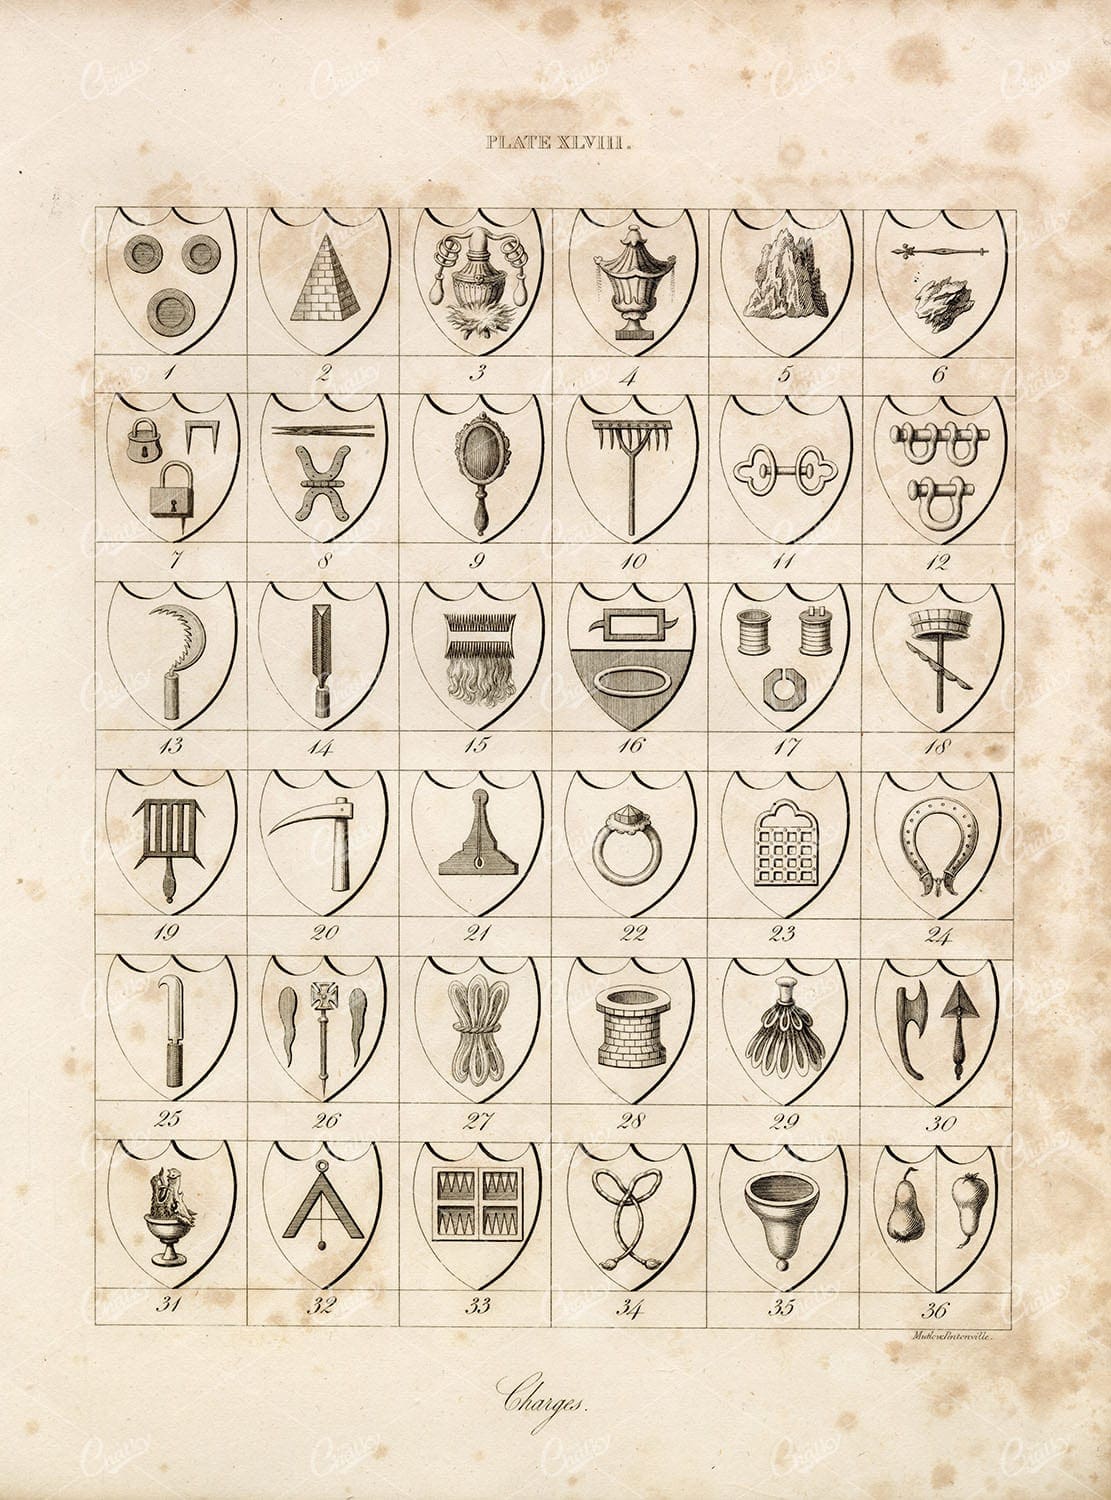 PLATE XLVIII.
1 2 3 4 5 6
7 8 9 10 11 12
13 14 15 16 17 18
19 20 21 22 23 24
25 26 27 28 29 30
31 32 33 34 35 36
Pentonville.
Charges.